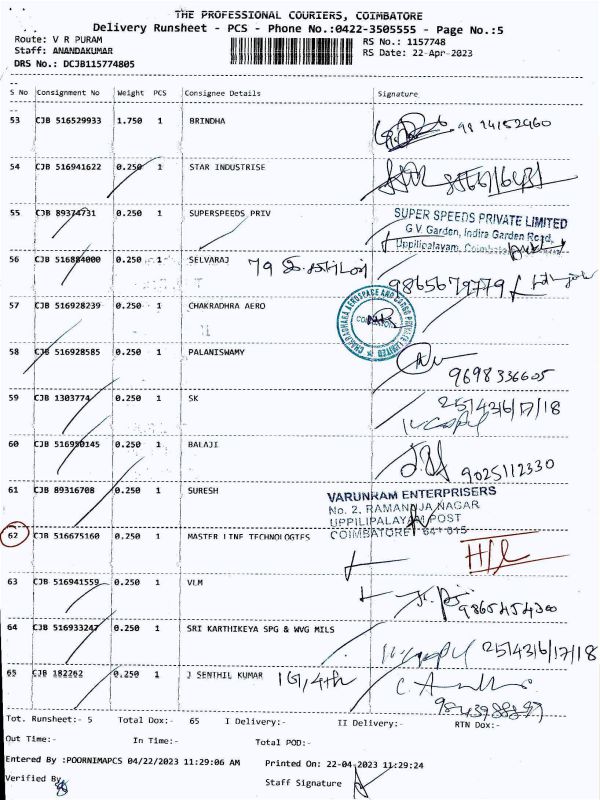 THE PROFESSIONAL COURIERS, COIMBATORE
Delivery Runsheet - PCS - Phone No.:0422-3505555 - Page No.:5
Route: V R PURAM RS No.: 1157748
Staff: ANANDAKUMAR RS Date: 22-Apr-2023
DRS No.: DCJB115774805
S No Consignment No Weight PCS Consignee Details Signature
53 CJB 516529933 1.750 1 BRINDHA
54 CJB 516941622 0.250 1 STAR INDUSTRISE
55 CJB 89374731 0.250 1 SUPERSPEEDS PRIV
SUPER SPEEDS PRIVATE LIMITED
G V Garden, Indira Garden Road,
Uppilipalayam, Coimbatore
56 CJB 516884000 0.250 1 SELVARAJ 79 9865679779
57 CJB 516928239 0.250 1 CHAKRADHRA AERO
58 CJB 516928585 0.250 1 PALANISWAMY
9698336605
59 CJB 1303774 0.250 1 SK 25/43/6/17/18
60 CJB 516950145 0.250 1 BALAJI 9025112330
61 CJB 89316708 0.250 1 SURESH
VARUNRAM ENTERPRISERS
No. 2, RAMANUJA NAGAR
UPPILIPALAYAM POST
COIMBATORE 641 015
62 CJB 516675160 0.250 1 MASTER LINE TECHNOLOGIES
63 CJB 516941559 0.250 1 VLM 9865454300
64 CJB 516933247 0.250 1 SRI KARTHIKEYA SPG & WVG MILS 25/43/6/17/18
65 CJB 182262 0.250 1 J SENTHIL KUMAR
Tot. Runsheet:- 5 Total Dox:- 65 I Delivery:- II Delivery:- RTN Dox:-
Out Time:- In Time:- Total POD:-
Entered By :POORNIMAPCS 04/22/2023 11:29:06 AM Printed On: 22-04-2023 11:29:24
Verified By Staff Signature